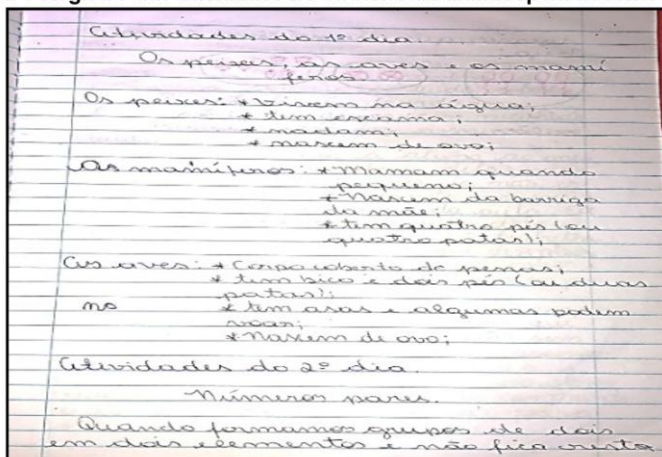 Atividades do 1º dia.
Os peixes, as aves e os mamí
feros
Os peixes: * Vivem na água;
* tem escama;
* nadam;
* nascem de ovo;
Os mamíferos: * Mamam quando
pequeno;
* Nascem da barriga
da mãe;
* tem quatro pés (ou
quatro patas);
As aves: * Corpo coberto de penas;
* tem bico e dois pés (ou duas
patas);
no * tem asas e algumas podem
voar;
* Nascem de ovo;
Atividades do 2º dia.
Números pares.
Quando formamos grupos de dois
em dois elementos e não fica